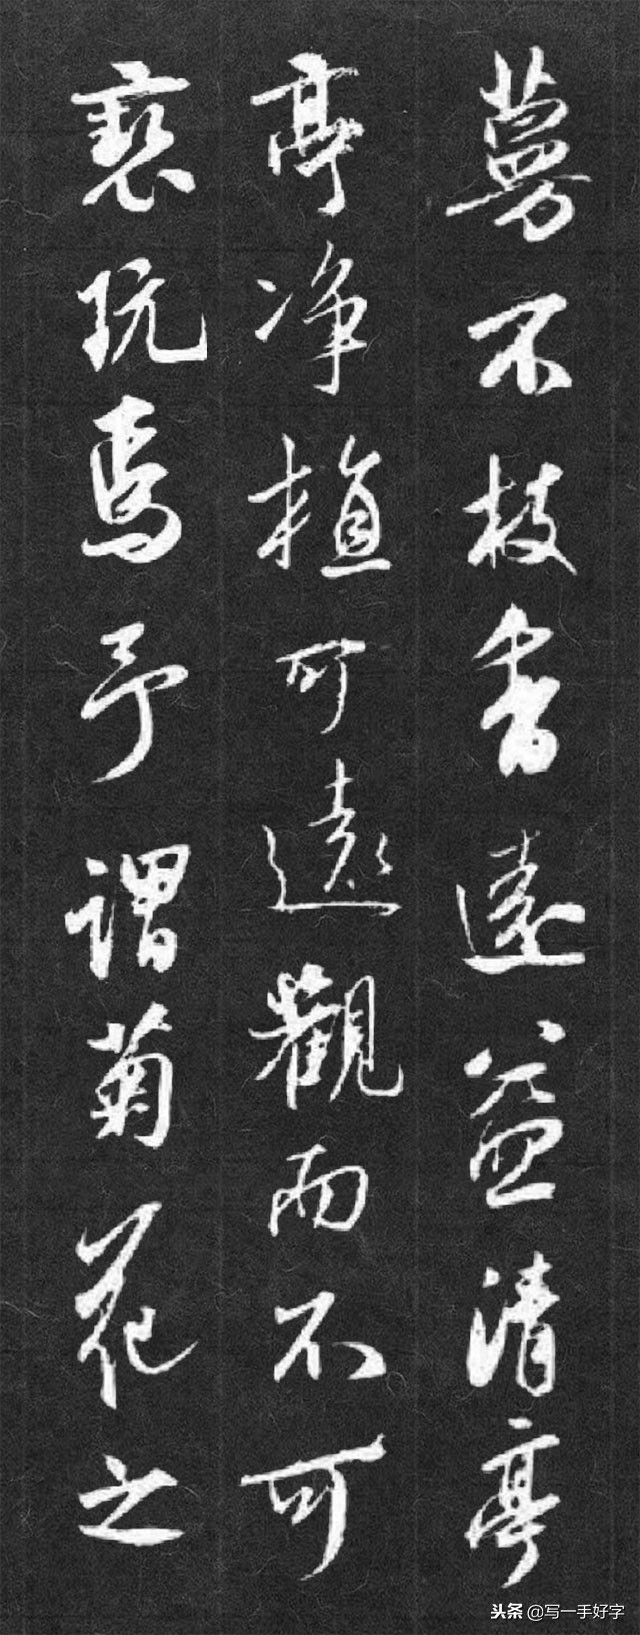 蔓不枝香遠益清亭
亭净植可遠觀而不可
亵玩焉予謂菊花之
头条 @写一手好字